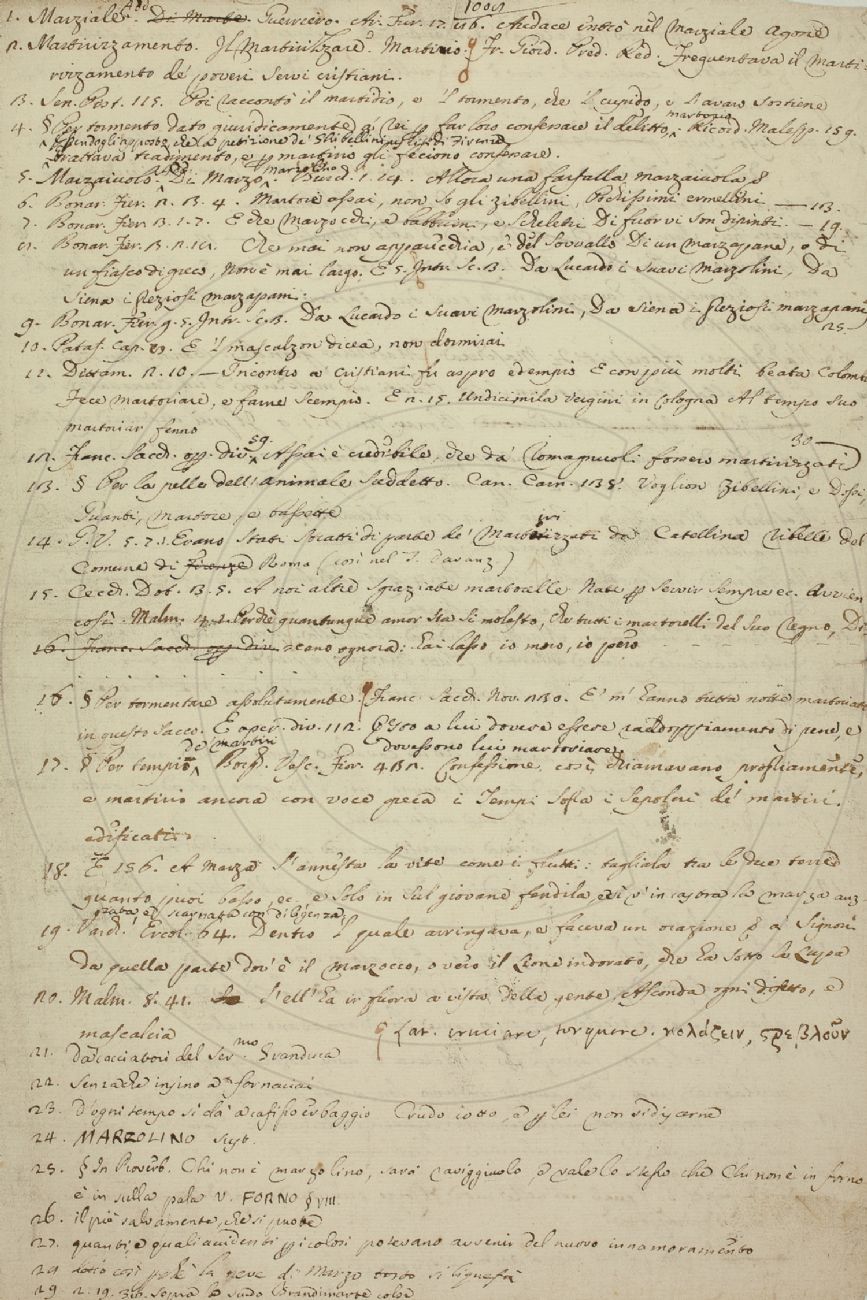 1009
1. Marziale. Add. Di Marte. Guerriero. Ar. Fur. 17. 116. Audace entrò nel Marziale agone
2. Martirizzamento. Il Martirizzare. Martirio. Fr. Giord. Pred. Red. Frequentava il marti-
rizzamento de' poveri servi cristiani.
3. Sen. Pist. 115. Poi raccontò il martidio, e 'l tormento, che 'l cupido, e l'avaro sostiene
4. § Per tormento dato giuridicamente a' rei p far loro confessare il delitto; martorio Ricord. Malesp. 159.
essendogli apposto, che a petizione de' Ghibellini usciti di Firenze
trattava tradimento, e p martirio gli feciono confessare.
5. Marzaiuolo. Add. Di Marzo, marzolino. Burch. 1. 14. Allora una farfalla marzaiuola
6. Bonar. Fier. 2. 3. 4. Martore assai, non so gli zibellini, Pochissimi ermellini — 13.
7. Bonar. Fier. 3. 1. 7. E che marzocchi, e babbuini, e scheletri Di fuor vi son dipinti. — 19.
8. Bonar. Fier. 3. 2. 12. Che mai non apparecchia, è del sovvallo Di un marzapane, o di
un fiasco di greco, Non è mai largo. E 5. Intr. Sc. 3. Da Lucardo i suavi Marzolini, Da
Siena i preziosi marzapani.
9. Bonar. Fier. g. 5. Intr. Sc. 3. Da Lucardo i suavi Marzolini, Da Siena i preziosi marzapani
25.
10. Pataf. cap. 9. E 'l mascalzon dicea, non dormirai
11. Dittam. 2. 10. — Incontro a' cristiani fu aspro ed empio E con più molti beata Colomba
Fece martoriare, e farne scempio. E 2. 15. Undicimila vergini in Cologna Al tempo suo
martoriar fenno
30
12. Franc. Sacch. op. div. 59. Assai è credibile, che da' Romagnuoli fossero martirizzati
13. § Per la pelle dell'animale suddetto. Can. Carn. 138. Voglion zibellini, e Dossi,
Guanti, martore, e bassette
14. G. V. 5. 7. Erano stati scacciati di parte de' Martirizzati da Catellina ribelle del
Comune di Firenze Roma (così nel T. Davanz)
15. Cecch. Dot. 3. 5. A noi altre sgraziate martorelle Nate p servir sempre ec. Avvien
così. Malm. 4. 2. Perchè quantunque amor sia sì molesto, che tutti i martorelli del suo regno, Di-
16. Franc. Sacch. op. div. cono ognora: hai lasso io moro, io pero
16. § Per tormentare assolutamente. Franc. Sacch. Nov. 230. E' m' hanno tutta notte martoriato
in questo sacco. E oper. div. 112. Questo a lui dovere essere raddoppiamento di pene, e
dovessono lui martoriare.
17. § Per tempio de' martiri. Borgh. Vesc. Fior. 432. Confessione, così, chiamavano propriamente,
e martirio ancora con voce greca i Tempi Sopra i sepolcri de' martiri.
edificati
18. E 156. A Marza s'annesta la vite come i frutti: tagliala tra le due terre
quanto puoi basso, ec. e solo in sul giovane fendila, e lì v'incastra la marza auz-
zata e scarnata con diligenza
19. Varch. Ercol. 64. Dentro 'l quale arringava, e faceva un orazione a' Signori
da quella parte dov' è il Marzocco, o vero il lione indorato, che ha sotto la Lupa
20. Malm. 8. 41. S'ell'ha ir fuora a vista della gente, Asconda ogni difetto, e
mascalcia
Lat. cruciare, torquere. κολάζειν, στρεβλοῦν
21. da' cacciatori del Ser.mo Granduca
22. senza che insino a' fornaciai
23. D'ogni tempo si dà a cafisso erbaggio Crudo cotto, e p lei non si discerne
24. MARZOLINO sust.
25. § In Proverb. Chi non è marzolino, sarà raviggiuolo, e vale lo stesso che Chi non è in forno
è in sulla pala V. FORNO § VIII.
26. il più salvamente, che si puote
27. quanti e quali accidenti pericolosi potevano avvenir del nuovo innamoramento
28. così p che la neve di Marzo tosto si liquefà
29. 2. 19. 36. Sopra lo scudo Brandimarte colse